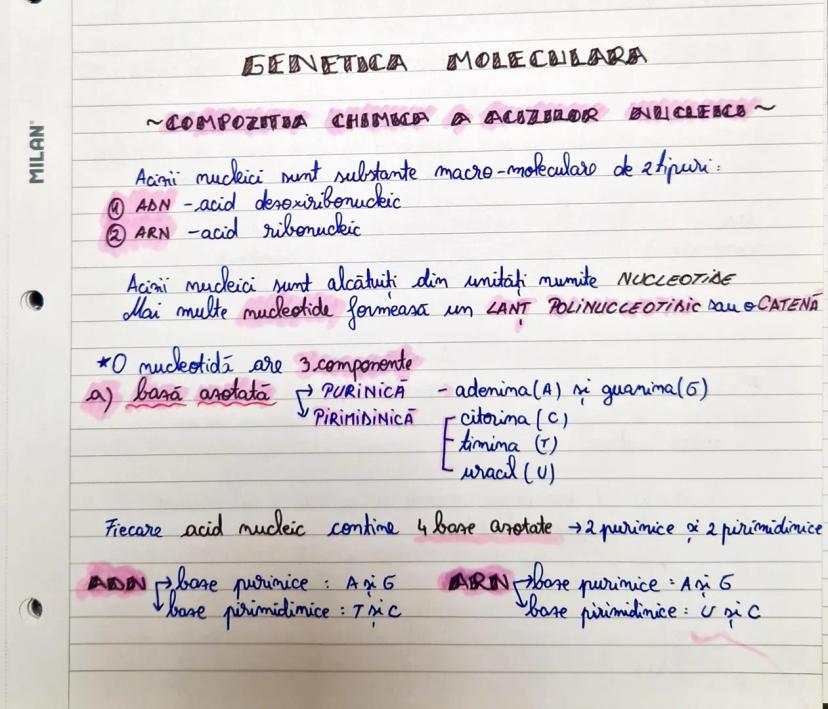 MILAN
GENETICA MOLECULARA
~COMPOZITIA CHIMICA A ACIZILOR NUCLEICI~
Acizii nucleici sunt substante macro-moleculare de 2 tipuri:
① ADN - acid dezoxiribonucleic
② ARN - acid ribonucleic
Acizii nucleici sunt alcătuiți din unități numite NUCLEOTIDE
Mai multe nucleotide formează un LANȚ POLINUCLEOTIDIC sau o CATENĂ
*O nucleotidă are 3 componente
a) bază azotată → PURINICĂ - adenina(A) și guanina(G)
↳ PIRIMIDINICĂ citozina (C)
timina (T)
uracil (U)
Fiecare acid nucleic contine 4 baze azotate → 2 purinice și 2 pirimidinice
ADN → baze purinice : A și G ARN → baze purinice : A și G
↳ baze pirimidinice : T și C ↳ baze pirimidinice : U și C